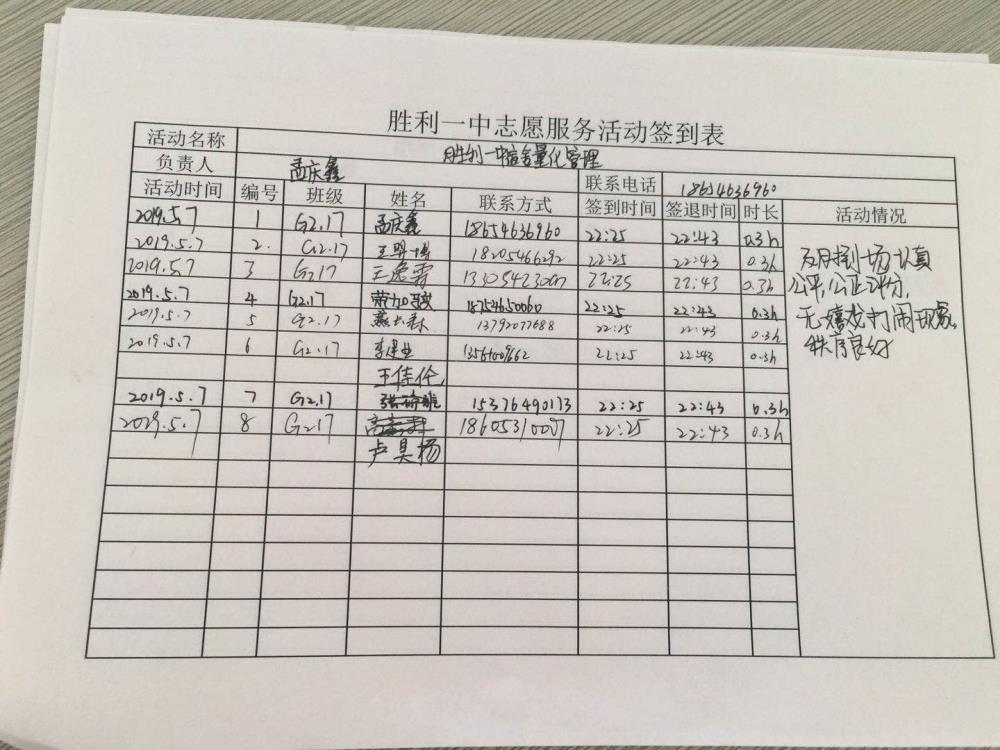 胜利一中志愿服务活动签到表
活动名称 胜利一中宿舍量化管理
负责人 孟庆鑫 联系电话 18654636960
活动时间 编号 班级 姓名 联系方式 签到时间 签退时间 时长 活动情况
2019.5.7 1 G2.17 孟庆鑫 18654636960 22:25 22:43 0.3h
2019.5.7 2. G2.17 18205466292 22:25 22:43 0.3h
2019.5.7 3 G2.17 22:25 22:43 0.3h
2019.5.7 4 G2.17 18754650060 22:25 22:43 0.3h
2019.5.7 5 G2.17 13792077688 22:25 22:43 0.3h
2019.5.7 6 G2.17 李建业 22:25 22:43 0.3h
王佳伦
2019.5.7 7 G2.17 15376490173 22:25 22:43 0.3h
2029.5.7 8 G2.17 18605310007 22:25 22:43 0.3h
卢昊杨
及时到场认真
公平,公正评分,
无嬉戏打闹现象,
秩序良好